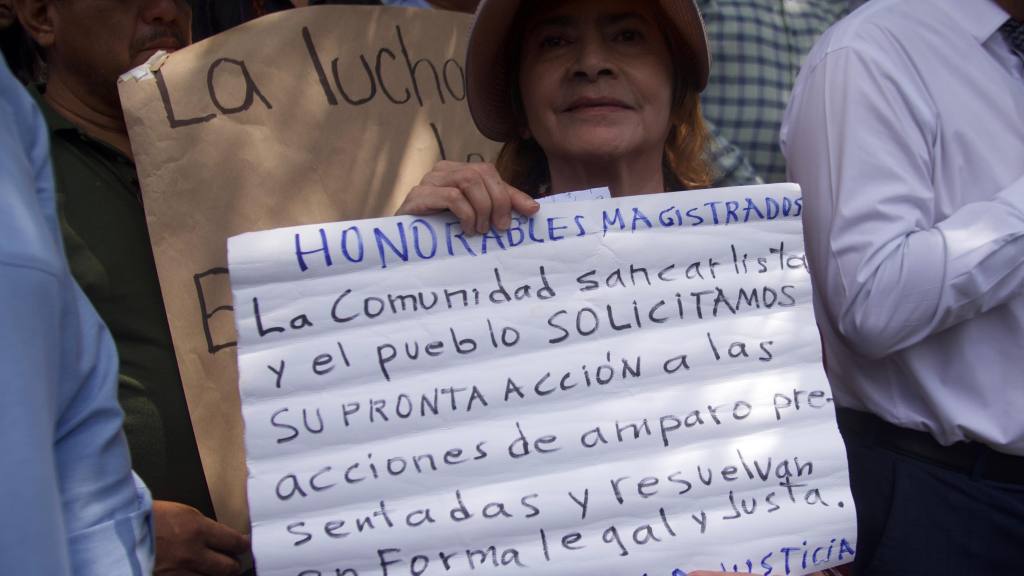 La lucha
E
HONORABLES MAGISTRADOS
La Comunidad sancarlista
y el pueblo SOLICITAMOS
SU PRONTA ACCIÓN a las
acciones de amparo pre-
sentadas y resuelvan
en Forma legal y Justa.
JUSTICIA